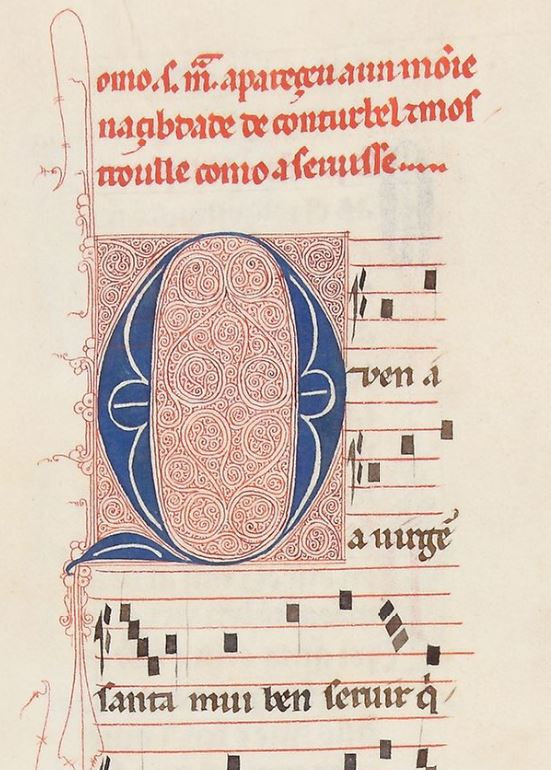 omo .S. m̃. apareçeu a un mõie
na çibdade de conturbel ⁊ mos
troulle como a seruisse.....
Quen a
a uirgẽ
santa mui ben seruir q̇